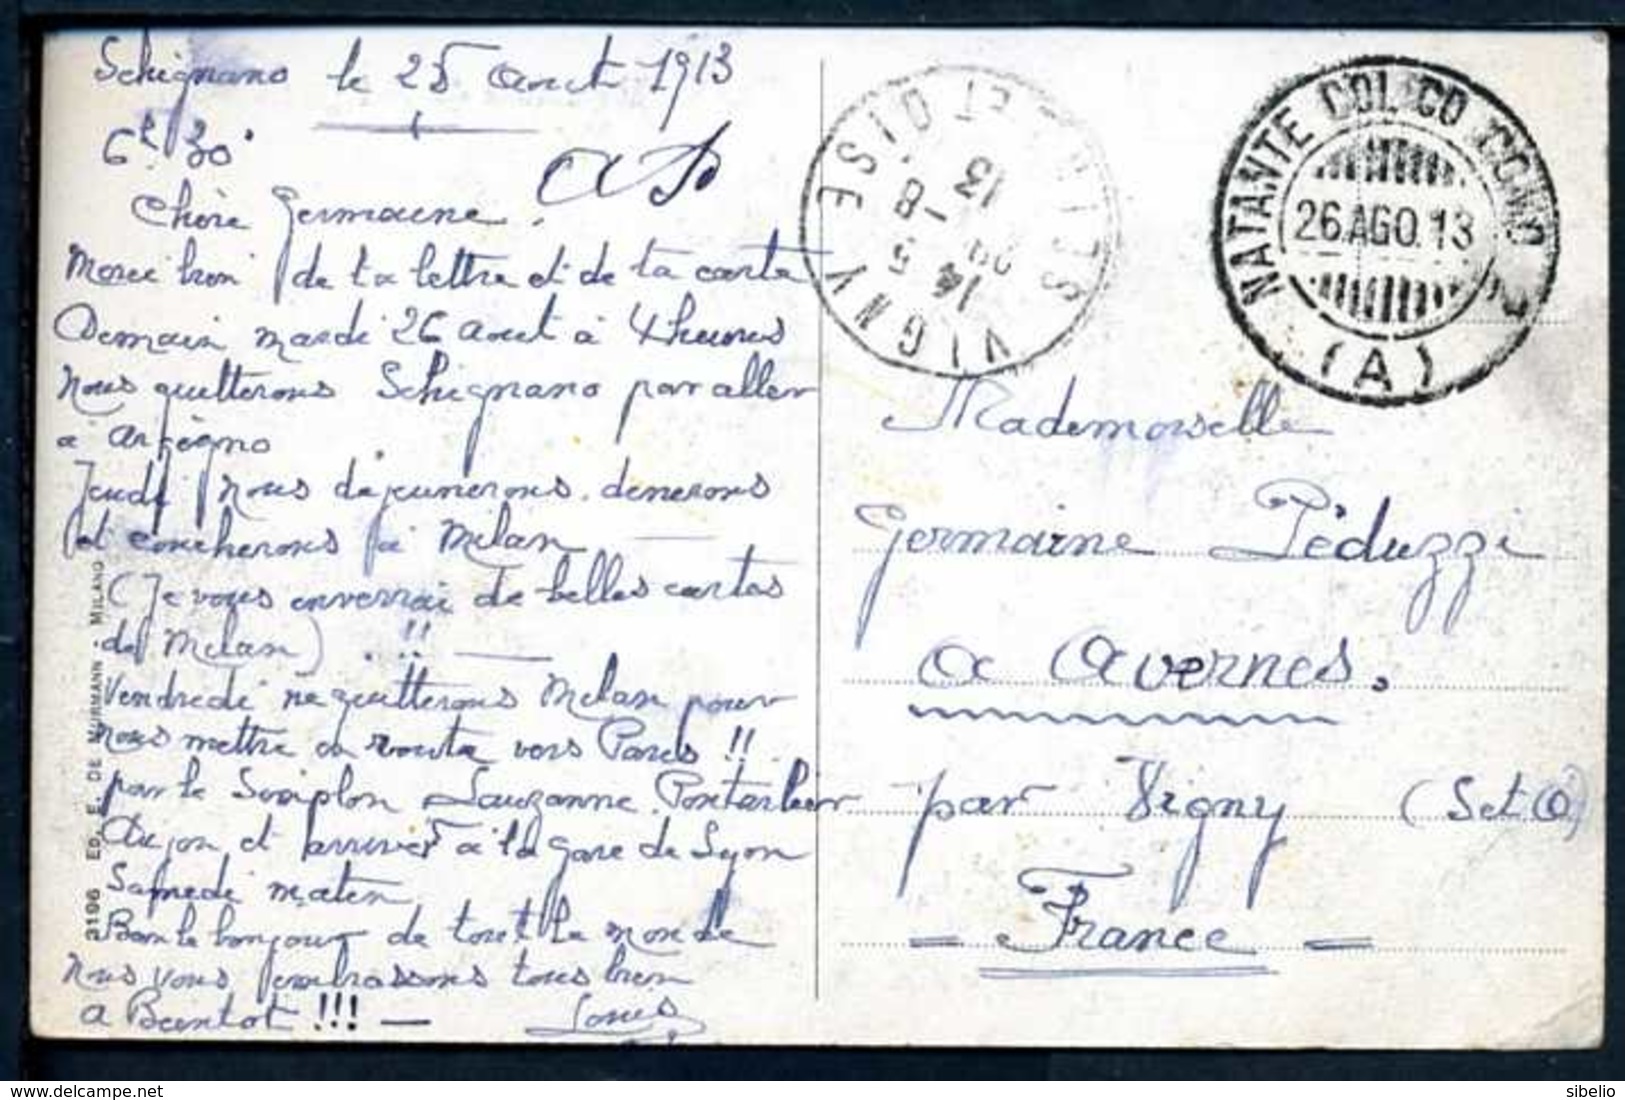 Schignano le 25 Aout 1913
6h 30
Chère Germaine.
Merci bien de ta lettre et de ta carte
Demain mardi 26 aout à 4 heures
nous quitterons Schignano par aller
a Argegno
Jeudi nous dejeunerons. dinerons
et coucherons à Milan —
(Je vous enverrai de belles cartes
de Milan). !! —
Vendredi ne quitterons Milan pour
nous mettre en route vers Paris !!
par le Simplon Lauzanne Pontarlier
Dijon et arriver à la gare de Lyon
Samedi matin
Bon le bonjour de tout le monde
nous vous embrassons tous bien
a Bientot !!! —
Louis
3106 ED. E. DE MURMANN - MILANO
VIGNY
SEINE ET OISE
14 5
-8
13
NATANTE COLICO COMO 2
26.AGO.13
(A)
Mademoiselle
Germaine Péduzzi
a Avernes.
par Vigny (S et O)
— France —
sibelio©